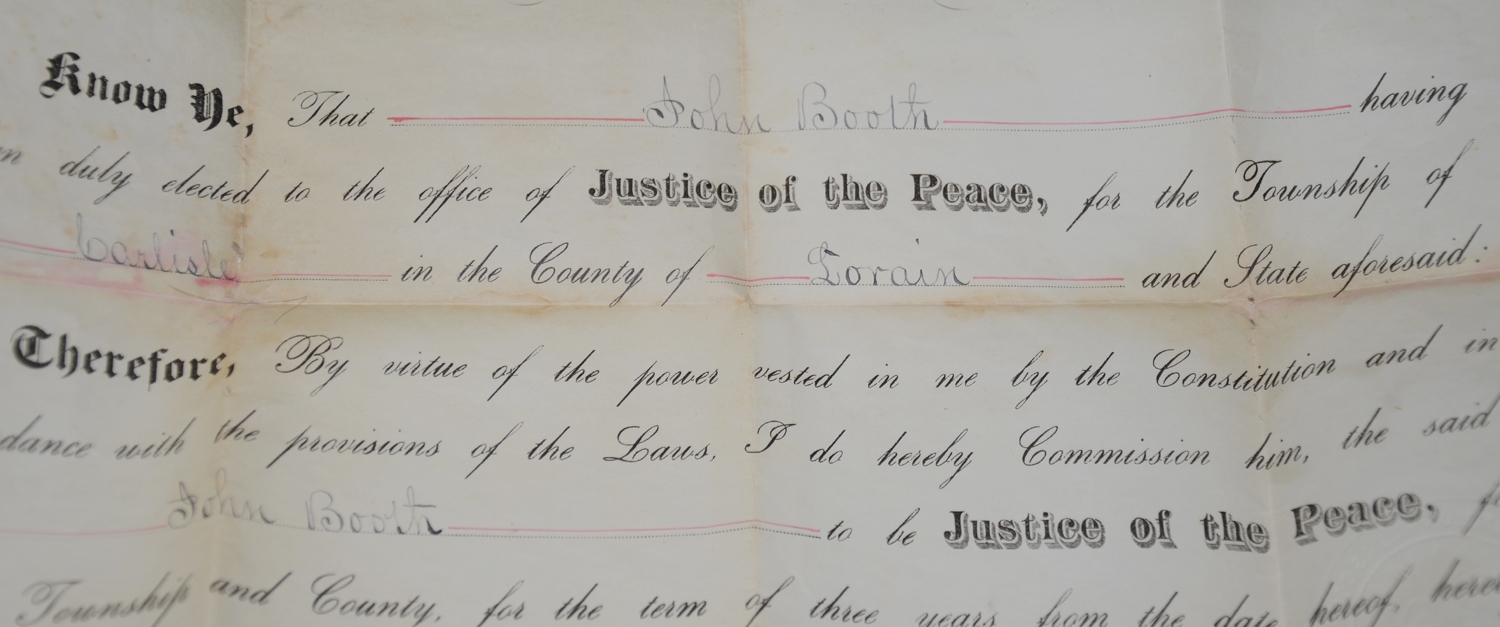 Know Ye, That John Booth having
duly elected to the office of Justice of the Peace, for the Township of
Carlisle in the County of Lorain and State aforesaid:
Therefore, By virtue of the power vested in me by the Constitution and in
dance with the provisions of the Laws, I do hereby Commission him, the said
John Booth to be Justice of the Peace,
Township and County, for the term of three years from the date hereof,